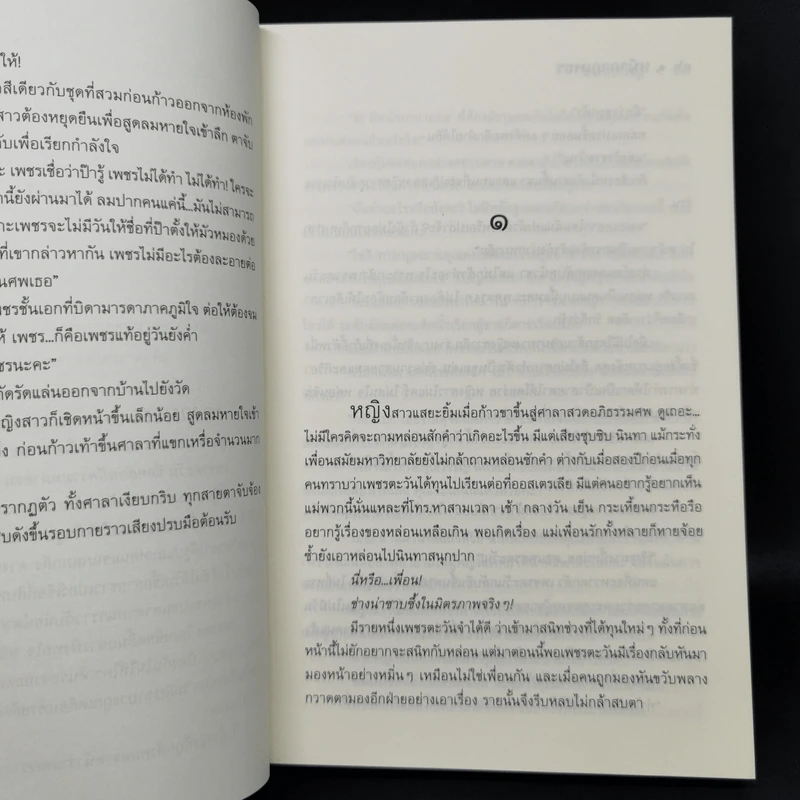 ให้!
สีเดียวกับชุดที่สวมก่อนก้าวออกจากห้องพัก
สาวต้องหยุดยืนเพื่อสูดลมหายใจเข้าลึก ตาจับ
เพื่อเรียกกำลังใจ
เพชรเชื่อว่าป๊ารู้ เพชรไม่ได้ทำ ไม่ได้ทำ! ใครจะ
นี้ยังผ่านมาได้ ลมปากคนแค่นี้...มันไม่สามารถ
เพชรจะไม่มีวันให้ชื่อที่ป๊าตั้งให้มัวหมองด้วย
ที่เขากล่าวหากัน เพชรไม่มีอะไรต้องละอายต่อ
นศพเธอ”
ชรชั้นเอกที่บิดามารดาภาคภูมิใจ ต่อให้ต้องจม
เพชร...ก็คือเพชรแท้อยู่วันยังค่ำ
ชรนะคะ”
กัดรัดแล่นออกจากบ้านไปยังวัด
ญิงสาวก็เชิดหน้าขึ้นเล็กน้อย สูดลมหายใจเข้า
ก่อนก้าวเท้าขึ้นศาลาที่แขกเหรื่อจำนวนมาก
รากฏตัว ทั้งศาลาเงียบกริบ ทุกสายตาจับจ้อง
บดังขึ้นรอบกายราวเสียงปรบมือต้อนรับ
๑
หญิงสาวแสยะยิ้มเมื่อก้าวขาขึ้นสู่ศาลาสวดอภิธรรมศพ ดูเถอะ...
ไม่มีใครคิดจะถามหล่อนสักคำว่าเกิดอะไรขึ้น มีแต่เสียงซุบซิบ นินทา แม้กระทั่ง
เพื่อนสมัยมหาวิทยาลัยยังไม่กล้าถามหล่อนซักคำ ต่างกับเมื่อสองปีก่อนเมื่อทุก
คนทราบว่าเพชรตะวันได้ทุนไปเรียนต่อที่ออสเตรเลีย มีแต่คนอยากรู้อยากเห็น
แม่พวกนี้นั่นแหละที่โทร.หาสามเวลา เช้า กลางวัน เย็น กระเหี้ยนกระหือรือ
อยากรู้เรื่องของหล่อนเหลือเกิน พอเกิดเรื่อง แม่เพื่อนรักทั้งหลายก็หายจ้อย
ซ้ำยังเอาหล่อนไปนินทาสนุกปาก
นี่หรือ...เพื่อน!
ช่างน่าซาบซึ้งในมิตรภาพจริงๆ!
มีรายหนึ่งเพชรตะวันจำได้ดี ว่าเข้ามาสนิทช่วงที่ได้ทุนใหม่ๆ ทั้งที่ก่อน
หน้านี้ไม่ยักอยากจะสนิทกับหล่อน แต่มาตอนนี้พอเพชรตะวันมีเรื่องกลับหันมา
มองหน้าอย่างหมิ่นๆ เหมือนไม่ใช่เพื่อนกัน และเมื่อคนถูกมองหันขวับพลาง
กวาดตามองอีกฝ่ายอย่างเอาเรื่อง รายนั้นจึงรีบหลบไม่กล้าสบตา